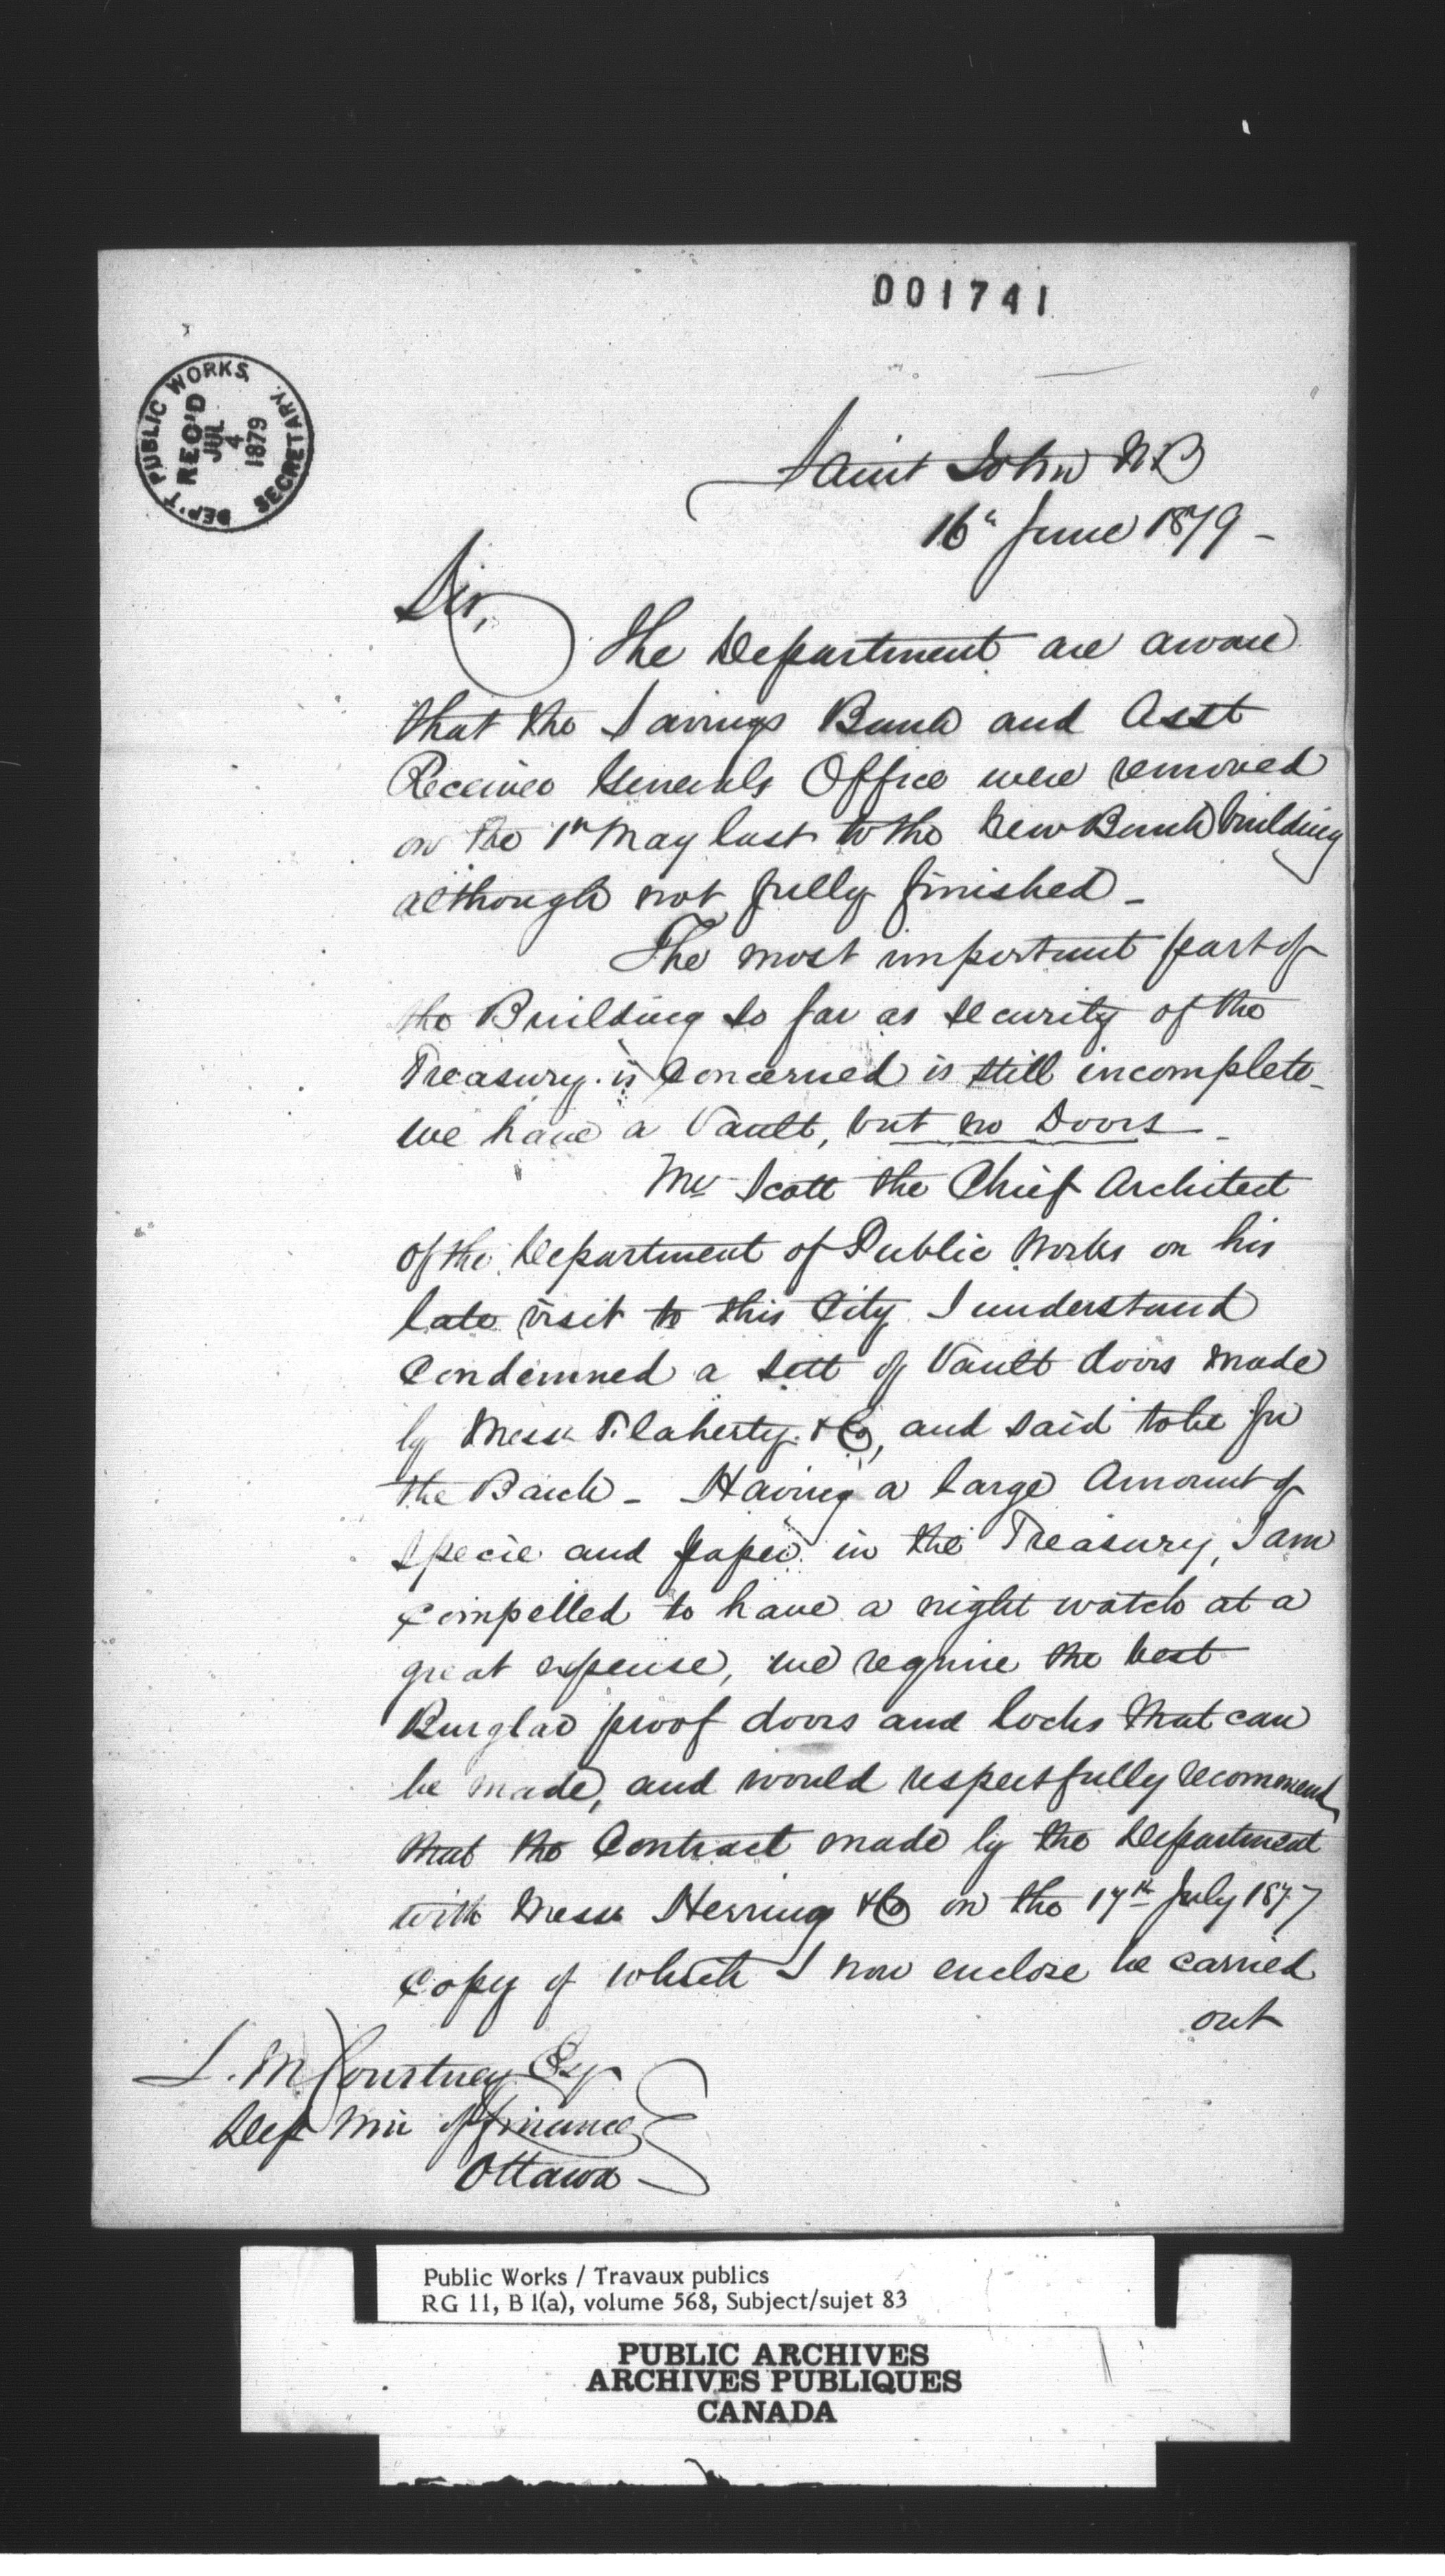 001741
DEP'T PUBLIC WORKS,
REC'D
JUL
4
1879
SECRETARY.
Saint John N.B
16" June 1879 -
Sir,
The Department are aware
that the Savings Bank and Asst
Receiver Generals Office were removed
on the 1st May last to the New Bank building
although not fully finished -
The most important part of
the Building so far as security of the
Treasury is concerned is still incomplete -
we have a Vault, but no Doors -
Mr Scott the Chief Architect
of the Department of Public Works on his
late visit to this City I understand
Condemned a sett of Vault doors made
by Messrs Flaherty & Co, and said to be for
the Bank - Having a large Amount of
specie and paper in the Treasury, I am
compelled to have a night watch at a
great expense, we require the best
Burglar proof doors and locks that can
be made, and would respectfully recommend
that the Contract made by the Department
with Messrs Herring & Co on the 17th July 1877
Copy of which I now enclose be carried
out
J. M Courtney Esq
Dep Min of Finance
Ottawa
Public Works / Travaux publics
RG 11, B 1(a), volume 568, Subject/sujet 83
PUBLIC ARCHIVES
ARCHIVES PUBLIQUES
CANADA